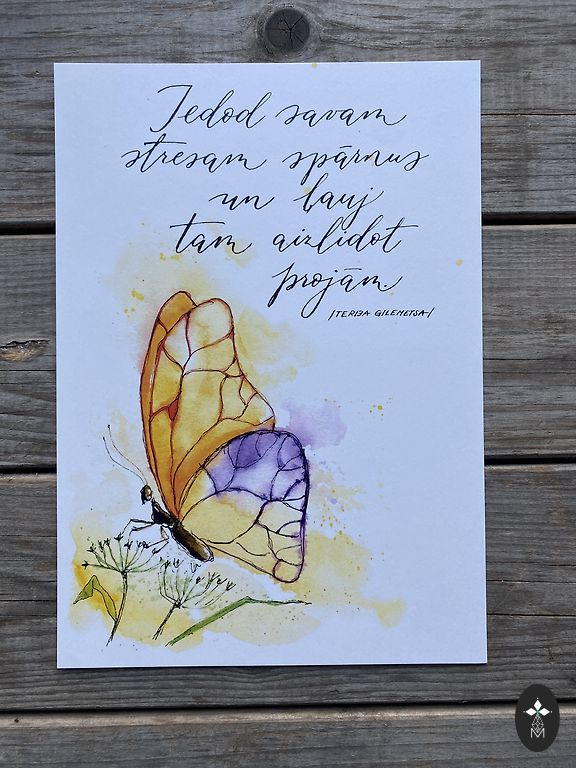 Iedod savam
stresam spārnus
un ļauj
tam aizlidot
projām
/TERĒZA GILEMETSA/
M